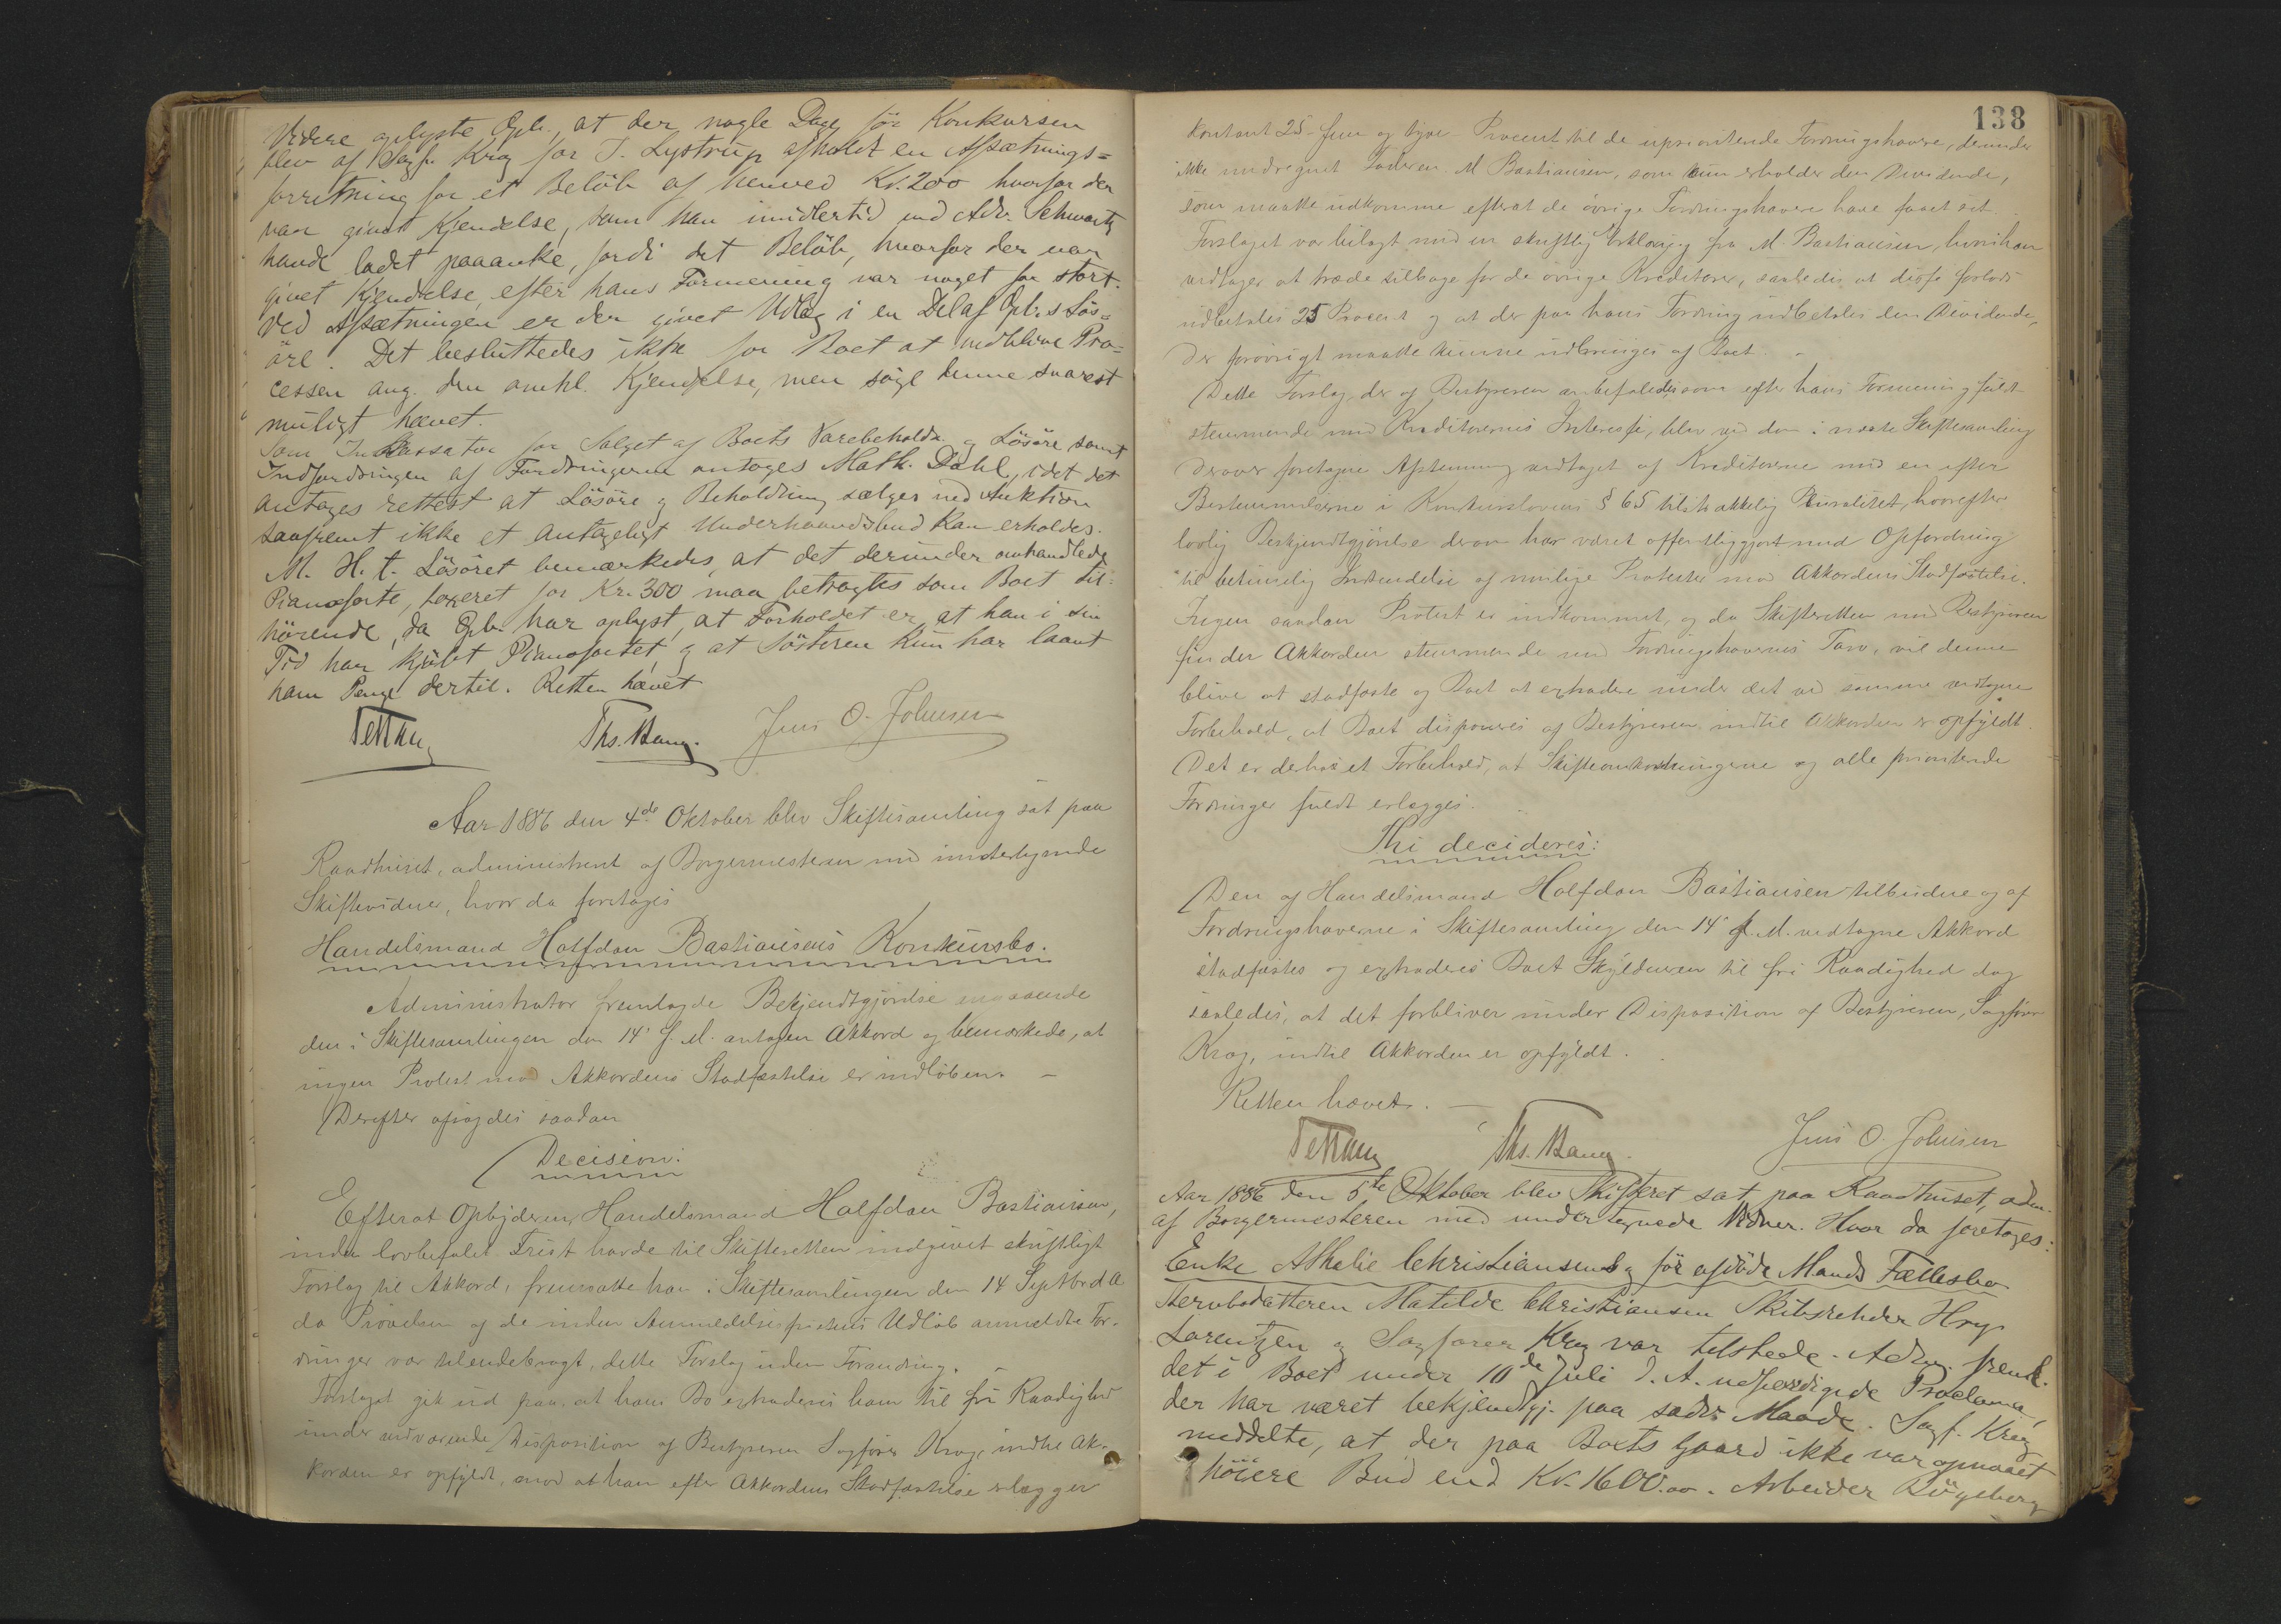 Videre oplyste Opb., at der nogle Dage før Konkursen
blev af Sagf. Krog for J. Lystrup afholdt en Afsætnings=
forretning for et Beløb af henved Kr. 200 hvorfor der
var givet Kjendelse, som han imidlertid ved Adv. Schwartz
havde ladet paaanke, fordi det Beløb, hvorfor der var
givet Kjendelse, efter hans Formening var noget for stort.
Ved Afsætningen er der givet Udlæg i en Del af Opb.s Løs=
øre. Det besluttedes ikke for Boet at vedblive Pro=
cessen ang. den omhl. Kjendelse, men søge denne snarest
muligt hævet.
Som Inkassator for Salget af Boets Varebeholdn. og Løsøre samt
Indfordringen af Fordringerne antoges Math. Dahl, idet det
antages rettest at Løsøre og Beholdning sælges ved Auktion
saafremt ikke et antageligt Underhaandsbud kan erholdes.
M. H. t. Løsøret bemærkedes, at det derunder omhandlede
Pianoforte, taxeret for Kr. 300 maa betragtes som Boet til=
hørende, da Opb. har oplyst, at Forholdet er, at han i sin
Tid har kjøbt Pianofortet, og at Søsteren kun har laant
ham Penge dertil. Retten hævet
Ths. Bang. Jens O. Johnsen
Aar 1886 den 4de Oktober blev Skiftesamling sat paa
Raadhuset, administreret af Borgermesteren med undertegnede
Skiftevidner, hvor da foretoges
Handelsmand Halfdan Bastiansens Konkursbo.
Administrator fremlagde Bekjendtgjørelse angaaende
den i Skiftesamlingen den 14' f. M. antagen Akkord og bemærkede, at
ingen Protest mod Akkordens Stadfæstelse er indløben. –
Derefter afsagdes saadan
Decision:
Efterat Opbyderen, Handelsmand Halfdan Bastiansen,
inden lovbefalet Frist havde til Skifteretten indgivet skriftligt
Forslag til Akkord, fremsatte han i Skiftesamlingen den 14 Septbr. d. A.
da Prøvelsen af de inden Anmeldelsesfristens Udløb anmeldte For=
dringer var tilendebragt, dette Forslag uden Forandring. –
Forslaget gik ud paa, at hans Bo extraderes ham til fri Raadighed
under vedvarende Disposition af Bestyreren Sagfører Krog, indtil Ak=
korden er opfyldt, mod at han efter Akkordens Stadfæstelse erlægger
138
kontant 25 – fem og tyve – Procent til de uprioriterede Fordringshavere, derunder
ikke medregnet Faderen M Bastiansen, som kun erholder den Dividende,
som maatte udkomme efterat de øvrige Fordringshavere have faaet sit.
Forslaget var bilagt med en skriftlig Erklæring fra M. Bastiansen, hvori han
vedtager at træde tilbage for de øvrige Kreditorer, saaledes at disse forlods
udbetales 25 Procent og at der paa hans Fordring udbetales den Dividende,
der forøvrigt maatte kunne udbringes af Boet. –
Dette Forslag, der af Bestyreren anbefaledes som efter hans Formening fuldt
stemmende med Kreditorernes Interesse, blev ved den i næste Skiftesamling
derover foretagne Afstemning vedtaget af Kreditorerne med en efter
Bestemmelserne i Konkurslovens § 65 tilstrækkelig Pluralitet, hvorefter
lovlig Bekjendtgjørelse derom har været offentliggjort med Opfordring
til betimelig Indsendelse af mulige Protester mod Akkordens Stadfæstelse.
Ingen saadan Protest er indkommet, og da Skifteretten med Bestyreren
finder Akkorden stemmende med Fordringshavernes Tarv, vil denne
blive at stadfæste og Boet at extradere under det ved samme vedtagne
Forbehold, at Boet disponeres af Bestyreren indtil Akkorden er opfyldt.
Det er derhos et Forbehold, at Skifteomkostningerne og alle prioriterede
Fordringer fuldt erlægges.
Thi decideres:
Den af Handelsmand Halfdan Bastiansen tilbudne og af
Fordringshaverne i Skiftesamling den 14' f. M. vedtagne Akkord
stadfæstes og extraderes Boet Skyldneren til fri Raadighed dog
saaledes, at det forbliver under Disposition af Bestyreren, Sagfører
Krog, indtil Akkorden er opfyldt.
Retten hævet. –
Ths. Bang. Jens O. Johnsen
Aar 1886 den 5te Oktober blev Skifteret sat paa Raadhuset, adm.
af Borgermesteren med undertegnede Vidner. Hvor da foretoges:
Enke Athalie Christiansens og før afdøde Mands Fællesbo
Stervbodatteren Matilde Christiansen Skibsreder Hry.
Lorentzen og Sagfører Krog var tilstede. Adm. freml.
det i Boet under 10de Juli d. A. udfærdigede Proclama,
der har været bekjendtgj. paa sedv. Maade. Sagf. Krog
meddelte, at der paa Boets Gaard ikke var opnaaet
høiere Bud end Kr. 1600.00. Arbeider Bøgeberg